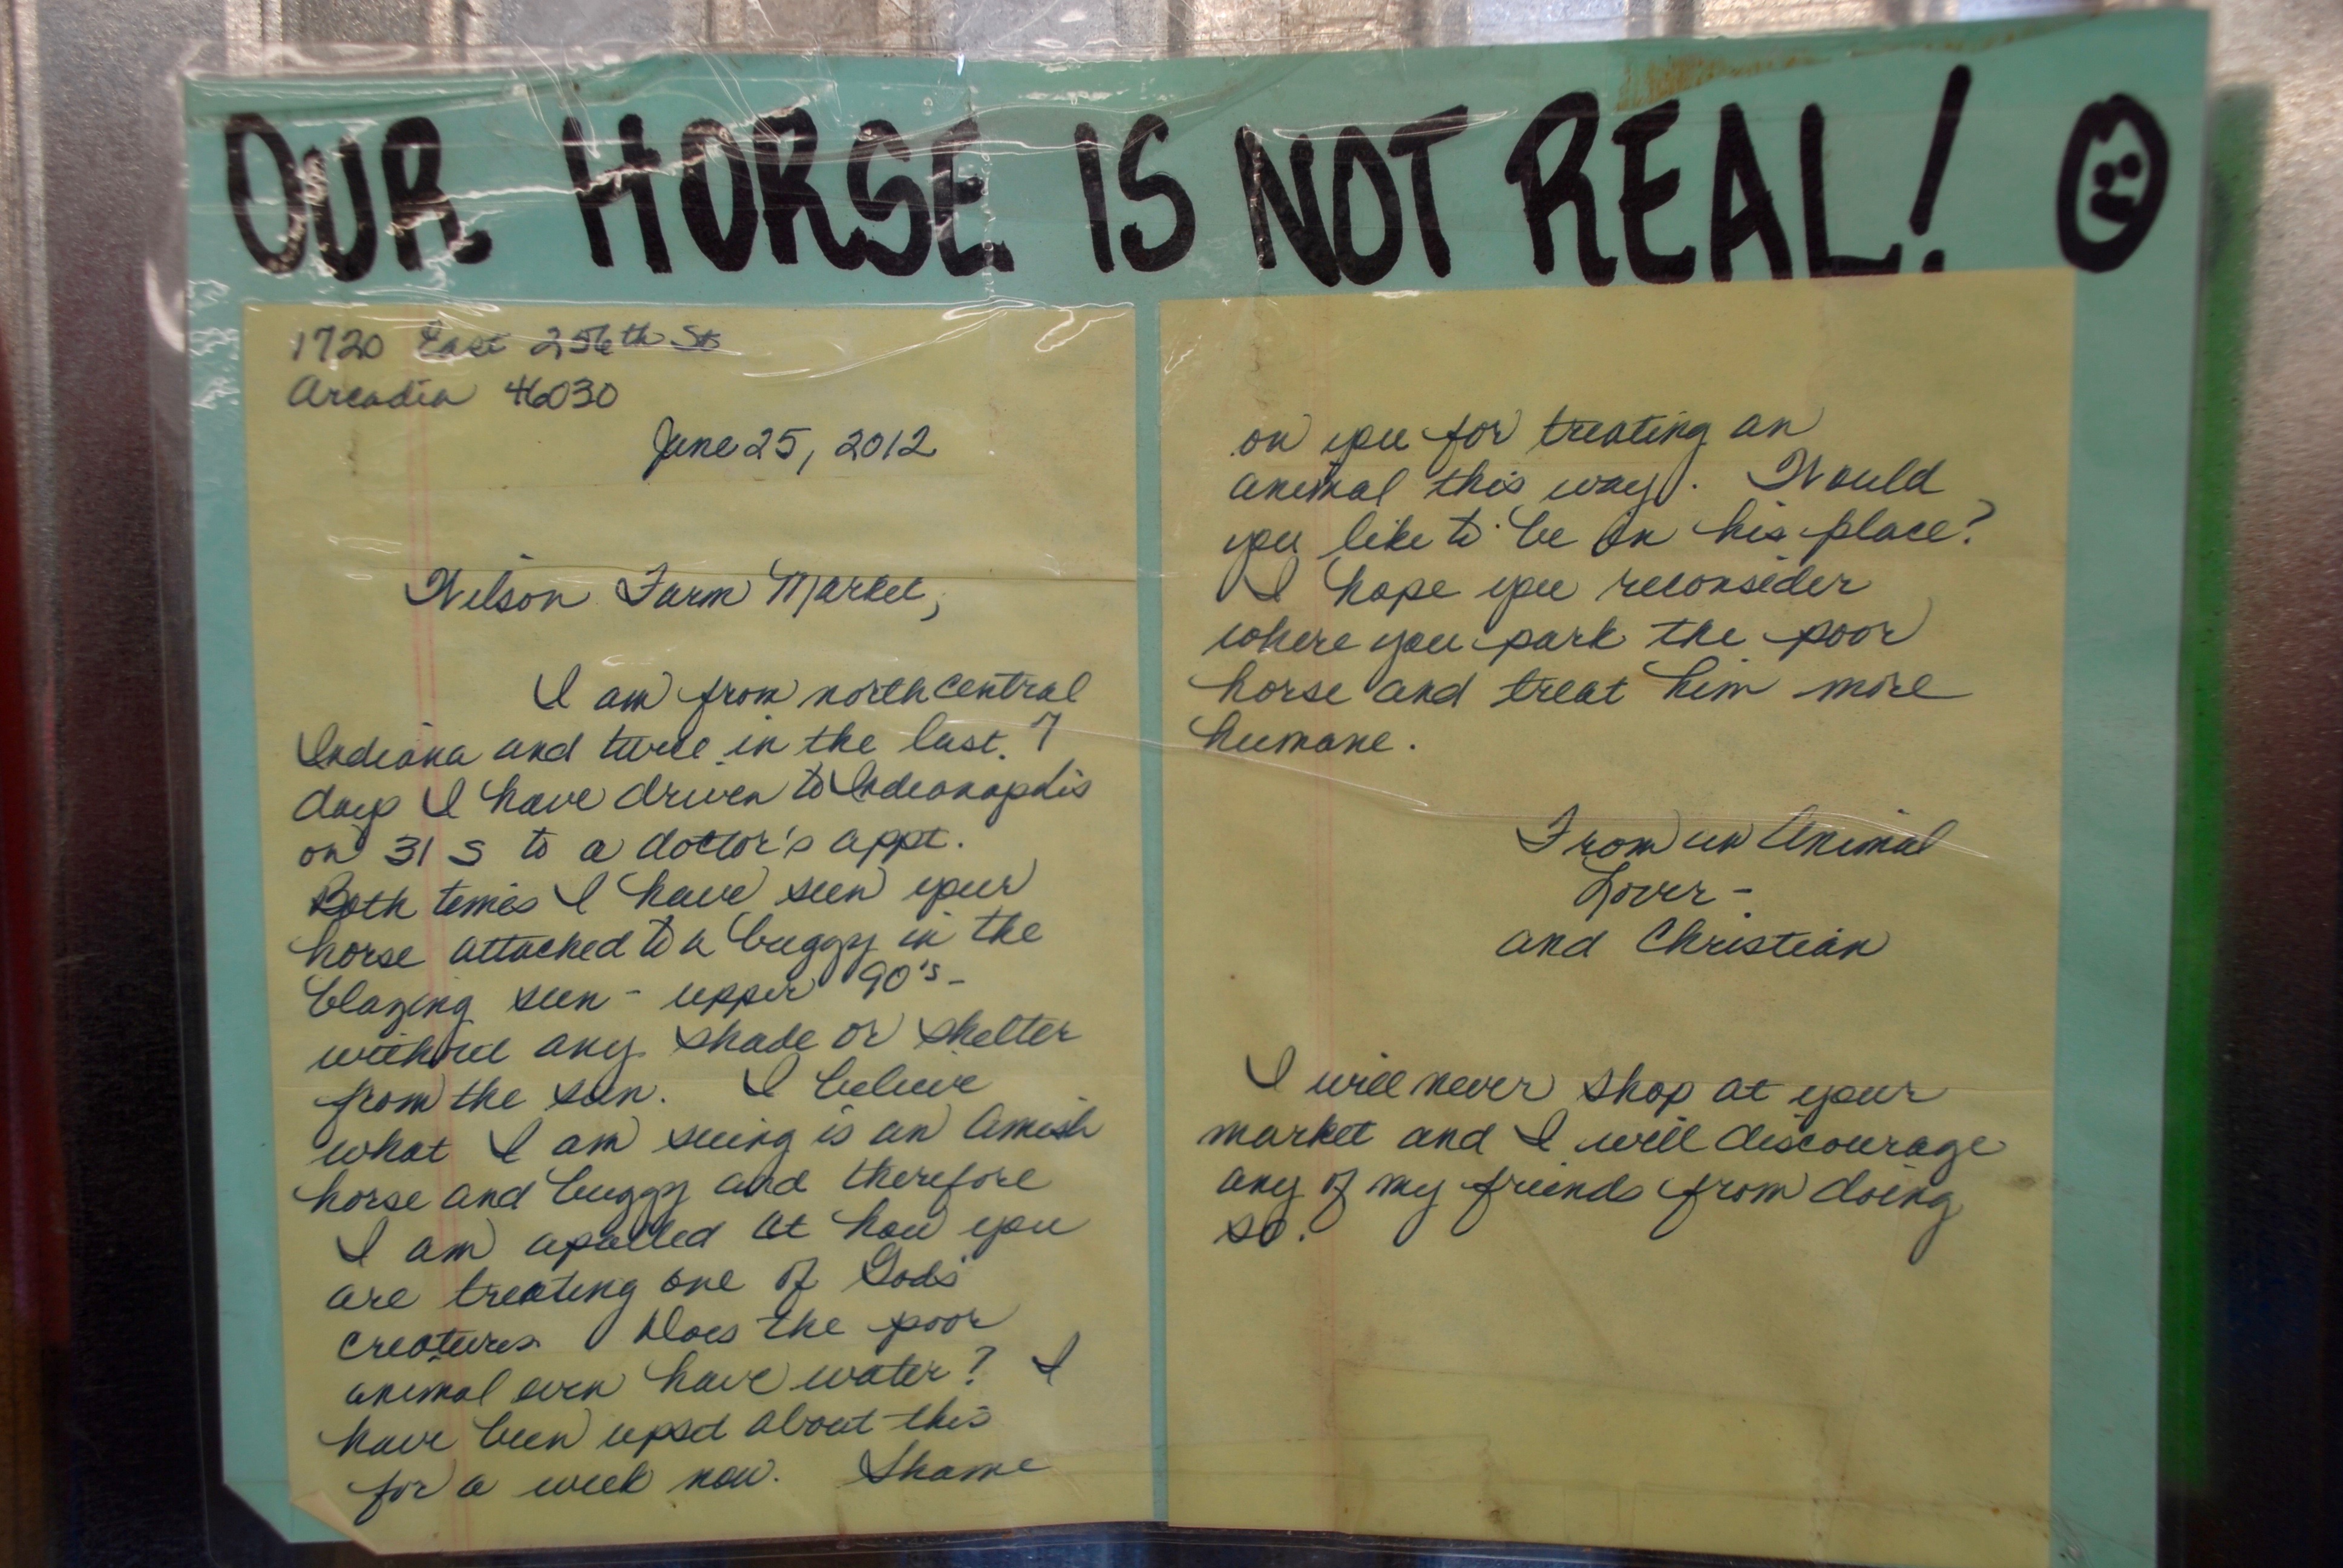 OUR HORSE IS NOT REAL!
1720 East 256th St
Arcadia 46030
June 25, 2012
Wilson Farm Market,
I am from north central
Indiana and twice in the last 7
days I have driven to Indianapolis
on 31 S to a doctor's appt.
Both times I have seen your
horse attached to a buggy in the
blazing sun - upper 90's -
without any shade or shelter
from the sun. I believe
what I am seeing is an Amish
horse and buggy and therefore
I am apalled at how you
are treating one of God's
creatures. Does the poor
animal even have water? I
have been upset about this
for a week now. Shame
on you for treating an
animal this way. Would
you like to be in his place?
I hope you reconsider
where you park the poor
horse and treat him more
humane.
From an Animal
Lover -
and Christian
I will never shop at your
market and I will discourage
any of my friends from doing
so.